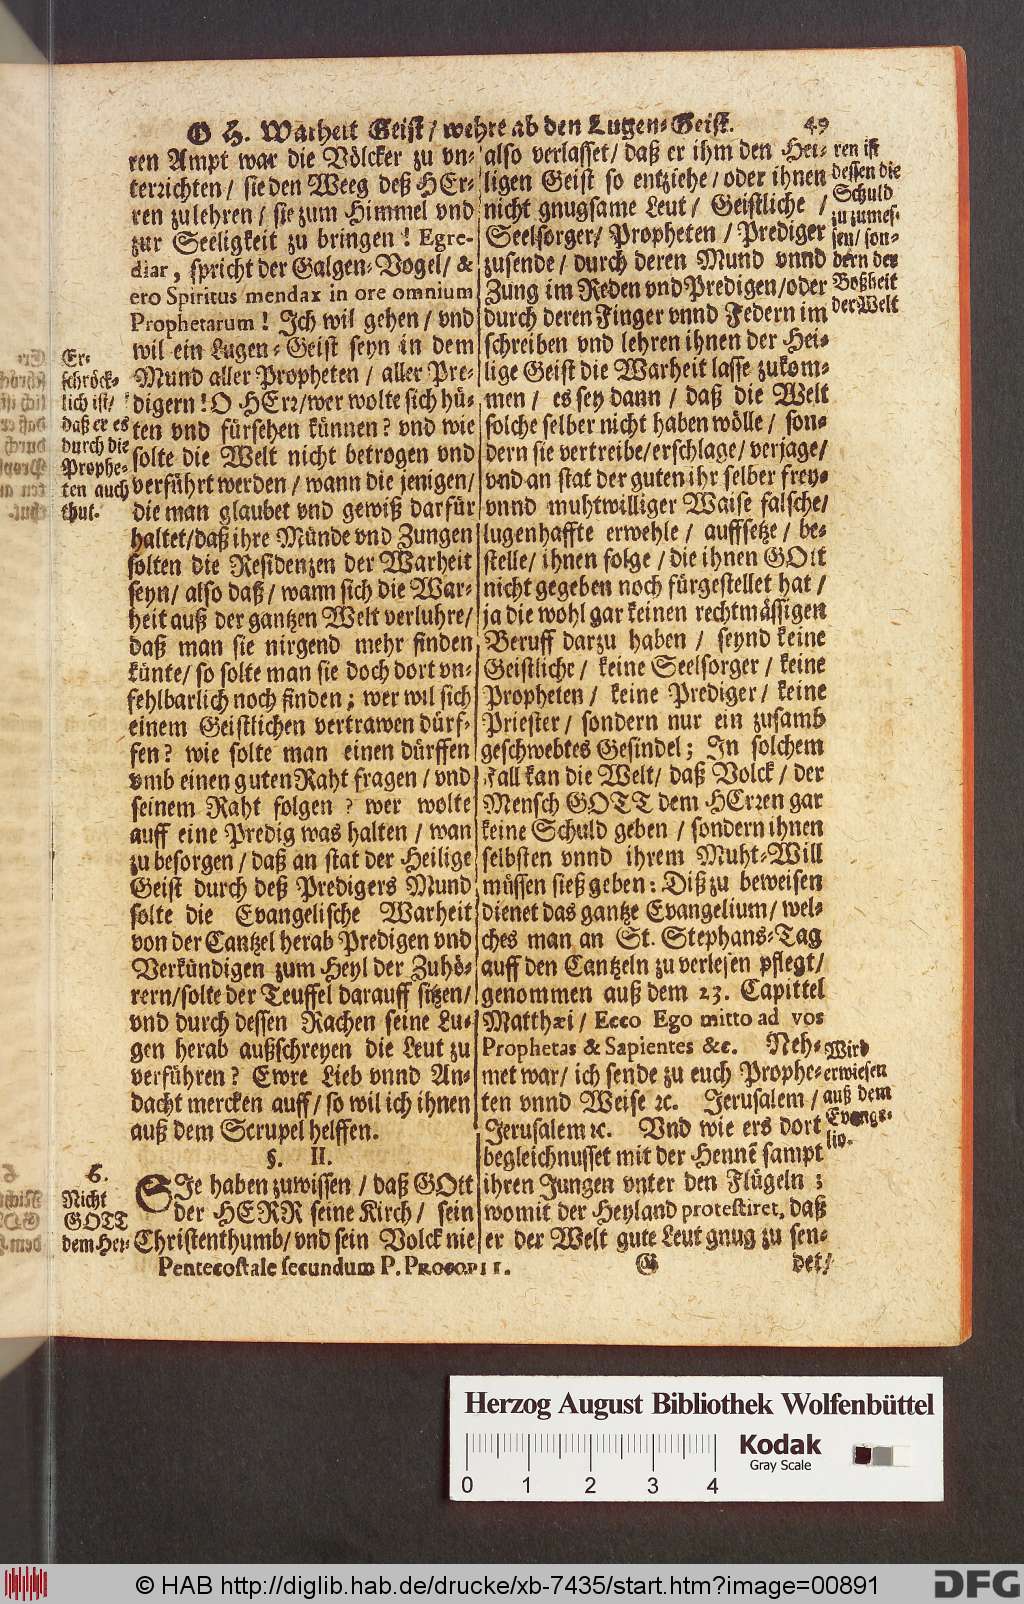 O H. Warheit Geist / wehre ab den Lugen-Geist. 49
ren Ampt war die Völcker zu vn-
terrichten / sie den Weeg deß HEr-
ren zu lehren / sie zum Himmel vnd
zur Seeligkeit zu bringen! Egre-
diar, spricht der Galgen-Vogel / &
ero Spiritus mendax in ore omnium
Prophetarum! Ich wil gehen / vnd
wil ein Lugen-Geist seyn in dem
Mund aller Propheten / aller Pre-
digern! O HErr / wer wolte sich hü-
ten vnd fürsehen künnen? vnd wie
solte die Welt nicht betrogen vnd
verführt werden / wann die jenigen /
die man glaubet vnd gewiß darfür
haltet / daß ihre Münde vnd Zungen
solten die Residenzen der Warheit
seyn / also daß / wann sich die War-
heit auß der gantzen Welt verluhre /
daß man sie nirgend mehr finden
künte / so solte man sie doch dort vn-
fehlbarlich noch finden; wer wil sich
einem Geistlichen vertrawen dürf-
fen? wie solte man einen dürffen
vmb einen guten Raht fragen / vnd
seinem Raht folgen? wer wolte
auff eine Predig was halten / wan
zu besorgen / daß an stat der Heilige
Geist durch deß Predigers Mund
solte die Evangelische Warheit
von der Cantzel herab Predigen vnd
Verkündigen zum Heyl der Zuhö-
rern / solte der Teuffel darauff sitzen /
vnd durch dessen Rachen seine Lu-
gen herab außschreyen die Leut zu
verführen? Ewre Lieb vnnd An-
dacht mercken auff / so wil ich ihnen
auß dem Scrupel helffen.
§. II.
SIe haben zuwissen / daß GOtt
der HERR seine Kirch / sein
Christenthumb / vnd sein Volck nie
Er-
schröck-
lich ist /
daß er es
durch die
Prophe-
ten auch
thut.
6.
Nicht
GOTT
dem Her-
also verlasset / daß er ihm den Hei-
ligen Geist so entziehe / oder ihnen
nicht gnugsame Leut / Geistliche /
Seelsorger / Propheten / Prediger
zusende / durch deren Mund vnnd
Zung im Reden vnd Predigen / oder
durch deren Finger vnnd Federn im
schreiben vnd lehren ihnen der Hei-
lige Geist die Warheit lasse zukom-
men / es sey dann / daß die Welt
solche selber nicht haben wölle / son-
dern sie vertreibe / erschlage / verjage /
vnd an stat der guten ihr selber frey-
vnnd muhtwilliger Waise falsche /
lugenhaffte erwehle / auffsetze / be-
stelle / ihnen folge / die ihnen GOtt
nicht gegeben noch fürgestellet hat /
ja die wohl gar keinen rechtmässigen
Beruff darzu haben / seynd keine
Geistliche / keine Seelsorger / keine
Propheten / keine Prediger / keine
Priester / sondern nur ein zusamb
geschwebtes Gesindel; In solchem
Fall kan die Welt / daß Volck / der
Mensch GOTT dem HErren gar
keine Schuld geben / sondern ihnen
selbsten vnnd ihrem Muht-Will
müssen sieß geben: Diß zu beweisen
dienet das gantze Evangelium / wel-
ches man an St. Stephans-Tag
auff den Cantzeln zu verlesen pflegt /
genommen auß dem 23. Capittel
Matthæi / Ecco Ego mitto ad vos
Prophetas & Sapientes &c. Neh-
met war / ich sende zu euch Prophe-
ten vnnd Weise ꝛc. Jerusalem /
Jerusalem ꝛc. Vnd wie ers dort
begleichnusset mit der Hennẽ sampt
ihren Jungen vnter den Flügeln;
womit der Heyland protestiret, daß
er der Welt gute Leut gnug zu sen-
ren ist
dessen die
Schuld
zu zumes-
sen / son-
dern der
Boßheit
der Welt
Wird
erwiesen
auß dem
Evange-
lio.
Pentecostale secundum P. PROCOPII. G det /
Herzog August Bibliothek Wolfenbüttel
Kodak
Gray Scale
0 1 2 3 4
© HAB http://diglib.hab.de/drucke/xb-7435/start.htm?image=00891
DFG